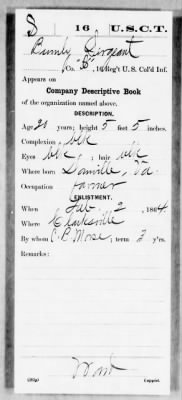 S 16 U.S.C.T.
Sergeant
Co. "B", 16 Reg't U. S. Col'd Inf.
Appears on
Company Descriptive Book
of the organization named above.
DESCRIPTION.
Age 20 years; height 5 feet 5 inches.
Complexion blk
Eyes blk; hair blk
Where born Danville, Va.
Occupation farmer
ENLISTMENT.
When Feb. 2, 1864.
Where Clarksville
By whom C. B. Morse; term 3 y'rs.
Remarks:
Copyist.